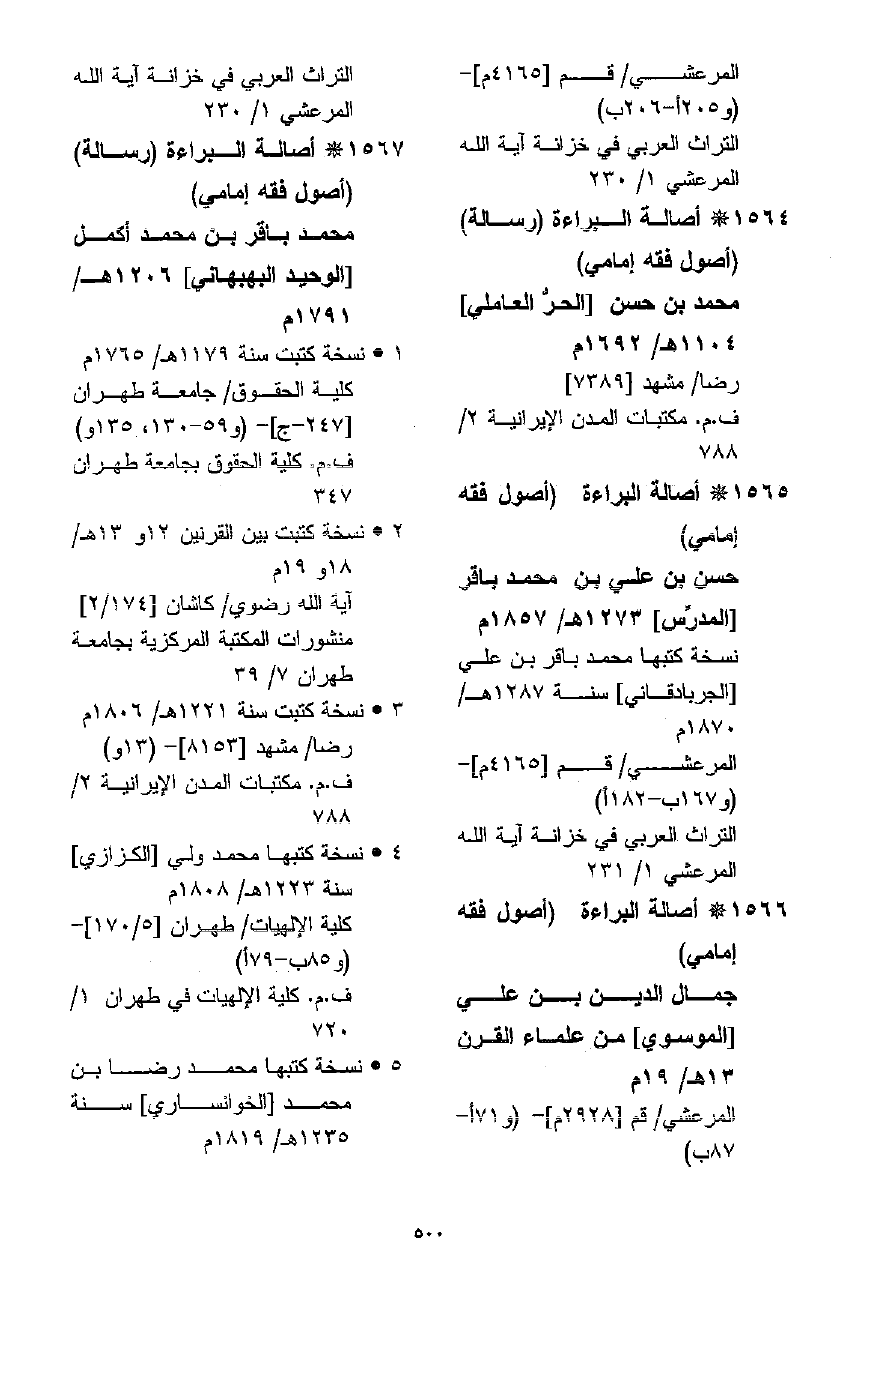 المرعشي/ قم [٤١٦٥م]-
(و٢٠٥أ-٢٠٦ب)
التراث العربي في خزانة آية الله
المرعشي ١/ ٢٣٠
١٥٦٤ * أصالة البراءة (رسالة)
(أصول فقه إمامي)
محمد بن حسن [الحرّ العاملي]
١١٠٤هـ/ ١٦٩٢م
رضا/ مشهد [٧٣٨٩]
ف.م. مكتبات المدن الإيرانية ٢/
٧٨٨
١٥٦٥ * أصالة البراءة (أصول فقه
إمامي)
حسن بن علي بن محمد باقر
[المدرّس] ١٢٧٣هـ/ ١٨٥٧م
نسخة كتبها محمد باقر بن علي
[الجربادقاني] سنة ١٢٨٧هـ/
١٨٧٠م
المرعشي/ قم [٤١٦٥م]-
(و١٦٧ب-١٨٢أ)
التراث العربي في خزانة آية الله
المرعشي ١/ ٢٣١
١٥٦٦ * أصالة البراءة (أصول فقه
إمامي)
جمال الدين بن علي
[الموسوي] من علماء القرن
١٣هـ/ ١٩م
المرعشي/ قم [٢٩٢٨م]- (و٧١أ-
٨٧ب)
التراث العربي في خزانة آية الله
المرعشي ١/ ٢٣٠
١٥٦٧ * أصالة البراءة (رسالة)
(أصول فقه إمامي)
محمد باقر بن محمد أكمل
[الوحيد البهبهاني] ١٢٠٦هـ/
١٧٩١م
١ • نسخة كتبت سنة ١١٧٩هـ/ ١٧٦٥م
كلية الحقوق/ جامعة طهران
[٢٤٧-ج]- (و٥٩-١٣٠، ١٣٥و)
ف.م. كلية الحقوق بجامعة طهران
٣٤٧
٢ • نسخة كتبت بين القرنين ١٢و ١٣هـ/
١٨و ١٩م
آية الله رضوي/ كاشان [٢/١٧٤]
منشورات المكتبة المركزية بجامعة
طهران ٧/ ٣٩
٣ • نسخة كتبت سنة ١٢٢١هـ/ ١٨٠٦م
رضا/ مشهد [٨١٥٣]- (١٣و)
ف.م. مكتبات المدن الإيرانية ٢/
٧٨٨
٤ • نسخة كتبها محمد ولي [الكزازي]
سنة ١٢٢٣هـ/ ١٨٠٨م
كلية الإلهيات/ طهران [١٧٠/٥]-
(و٨٥ب-٧٩أ)
ف.م. كلية الإلهيات في طهران ١/
٧٢٠
٥ • نسخة كتبها محمد رضا بن
محمد [الخوانساري] سنة
١٢٣٥هـ/ ١٨١٩م
٥٠٠